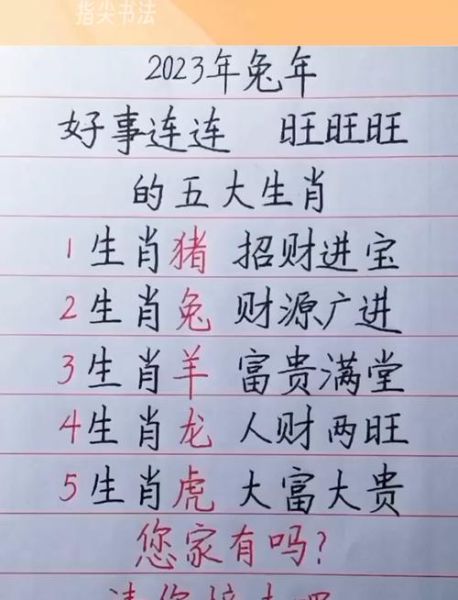 指尖书法
2023年兔年
好事连连 旺旺旺
的五大生肖
1生肖猪 招财进宝
2生肖兔 财源广进
3生肖羊 富贵满堂
4生肖龙 人财两旺
5生肖虎 大富大贵
您家有吗?